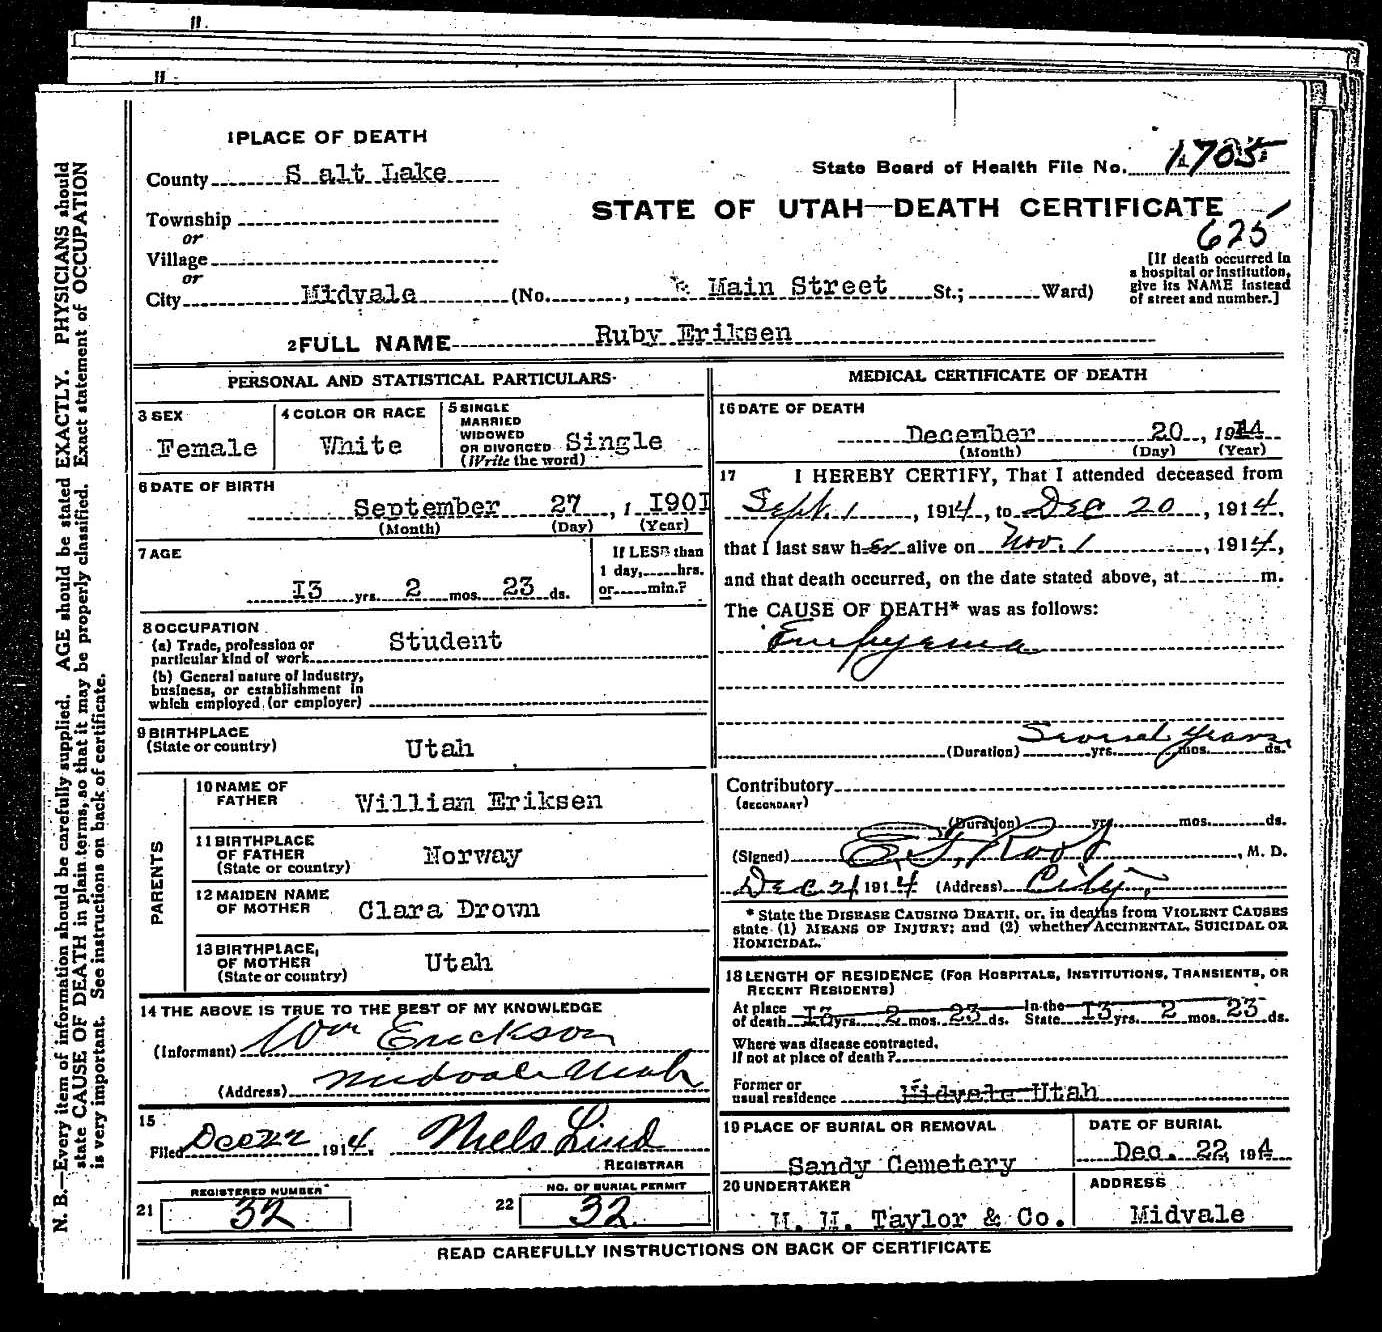 11
11
N. B.—Every item of information should be carefully supplied. AGE should be stated EXACTLY. PHYSICIANS should
state CAUSE OF DEATH in plain terms, so that it may be properly classified. Exact statement of OCCUPATION
is very important. See instructions on back of certificate.
1 PLACE OF DEATH
County S alt Lake
State Board of Health File No. 1705
Township
STATE OF UTAH—DEATH CERTIFICATE
625
or
Village
or
City Midvale (No. , Main Street St.; Ward)
[If death occurred in
a hospital or institution,
give its NAME instead
of street and number.]
2 FULL NAME Ruby Eriksen
PERSONAL AND STATISTICAL PARTICULARS
3 SEX
Female
4 COLOR OR RACE
White
5 SINGLE
MARRIED
WIDOWED
OR DIVORCED Single
(Write the word)
6 DATE OF BIRTH
September 27, 1 I90I
(Month) (Day) (Year)
7 AGE
I3 yrs. 2 mos. 23 ds.
If LESS than
1 day, hrs.
or min.?
8 OCCUPATION
(a) Trade, profession or
particular kind of work Student
(b) General nature of Industry,
business, or establishment in
which employed (or employer)
9 BIRTHPLACE
(State or country) Utah
PARENTS
10 NAME OF
FATHER William Eriksen
11 BIRTHPLACE
OF FATHER
(State or country) Norway
12 MAIDEN NAME
OF MOTHER Clara Drown
13 BIRTHPLACE,
OF MOTHER
(State or country) Utah
14 THE ABOVE IS TRUE TO THE BEST OF MY KNOWLEDGE
(Informant) Wm Erickson
(Address) Midvale Utah
15
Filed Dec 22 1914, Niels Lind
REGISTRAR
REGISTERED NUMBER
21 32
NO. OF BURIAL PERMIT
22 32
MEDICAL CERTIFICATE OF DEATH
16 DATE OF DEATH
December 20, 1914
(Month) (Day) (Year)
17 I HEREBY CERTIFY, That I attended deceased from
Sept. 1, 1914, to Dec 20, 1914,
that I last saw her alive on Nov. 1, 1914,
and that death occurred, on the date stated above, at m.
The CAUSE OF DEATH* was as follows:
Empyema
(Duration) Several years yrs. mos. ds.
Contributory
(SECONDARY)
(Duration) yrs. mos. ds.
(Signed) , M. D.
Dec 21 1914 (Address) City.
* State the DISEASE CAUSING DEATH, or, in deaths from VIOLENT CAUSES
state (1) MEANS OF INJURY; and (2) whether ACCIDENTAL, SUICIDAL OR
HOMICIDAL.
18 LENGTH OF RESIDENCE (FOR HOSPITALS, INSTITUTIONS, TRANSIENTS, OR
RECENT RESIDENTS)
At place In the
of death I3 yrs. 2 mos. 23 ds. State I3 yrs. 2 mos. 23 ds.
Where was disease contracted,
if not at place of death?
Former or
usual residence Midvale Utah
19 PLACE OF BURIAL OR REMOVAL
Sandy Cemetery
DATE OF BURIAL
Dec. 22, 1914
20 UNDERTAKER
H. M. Taylor & Co.
ADDRESS
Midvale
READ CAREFULLY INSTRUCTIONS ON BACK OF CERTIFICATE